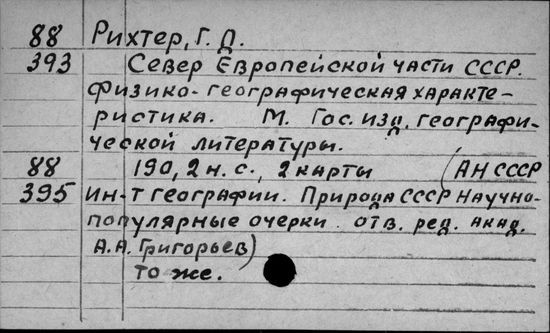 88 Рихтер, Г. Д.
393 Север Европейской части СССР.
физико-географическая характе-
ристика. М. Гос. изд. географи-
ческой литературы.
88 190, 2 н. с., 2 карты (АН СССР
395 Ин-т географии. Природа СССР Научно-
популярные очерки. отв. ред. акад.
А.А. Григорьев)
то же.